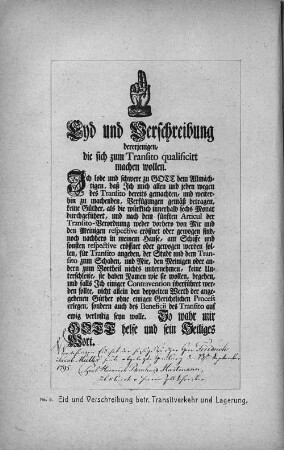 Eyd und Verschreibung
dererjenigen,
die sich zum Transito qualificirt
machen wollen.
Ich lobe und schwere zu GOTT dem Allmäch-
tigen, daß Ich mich allen und jeden wegen
des Transito bereits gemachten, und weiter-
hin zu machenden, Verfügungen gemäß betragen,
keine Güther, als die würklich innerhalb sechs Monat
durchgeführet, und nach dem fünften Articul der
Transito-Verordnung weder vorhero von Mir und
den Meinigen respective eröfnet oder gewogen sind,
noch nachhero in meinem Hause, am Schiffe und
sonsten respective eröfnet oder gewogen werden sol-
len, für Transito angeben, der Stadt und dem Tran-
sito zum Schaden, und Mir, den Meinigen oder an-
dern zum Vortheil nichts unternehmen, keine Un-
terschleife, sie haben Namen wie sie wollen, begehen,
und falls Ich einiger Contravention überführet wer-
den sollte, nicht allein den doppelten Werth der an-
gegebenen Güther ohne einigen Gerichtlichen Proceß
erlegen, sondern auch des Beneficii des Transito auf
ewig verlustig seyn wolle. So wahr mir
GOTT helfe und sein Heiliges
Wort.
1795
No. 5. Eid und Verschreibung betr. Transitverkehr und Lagerung.